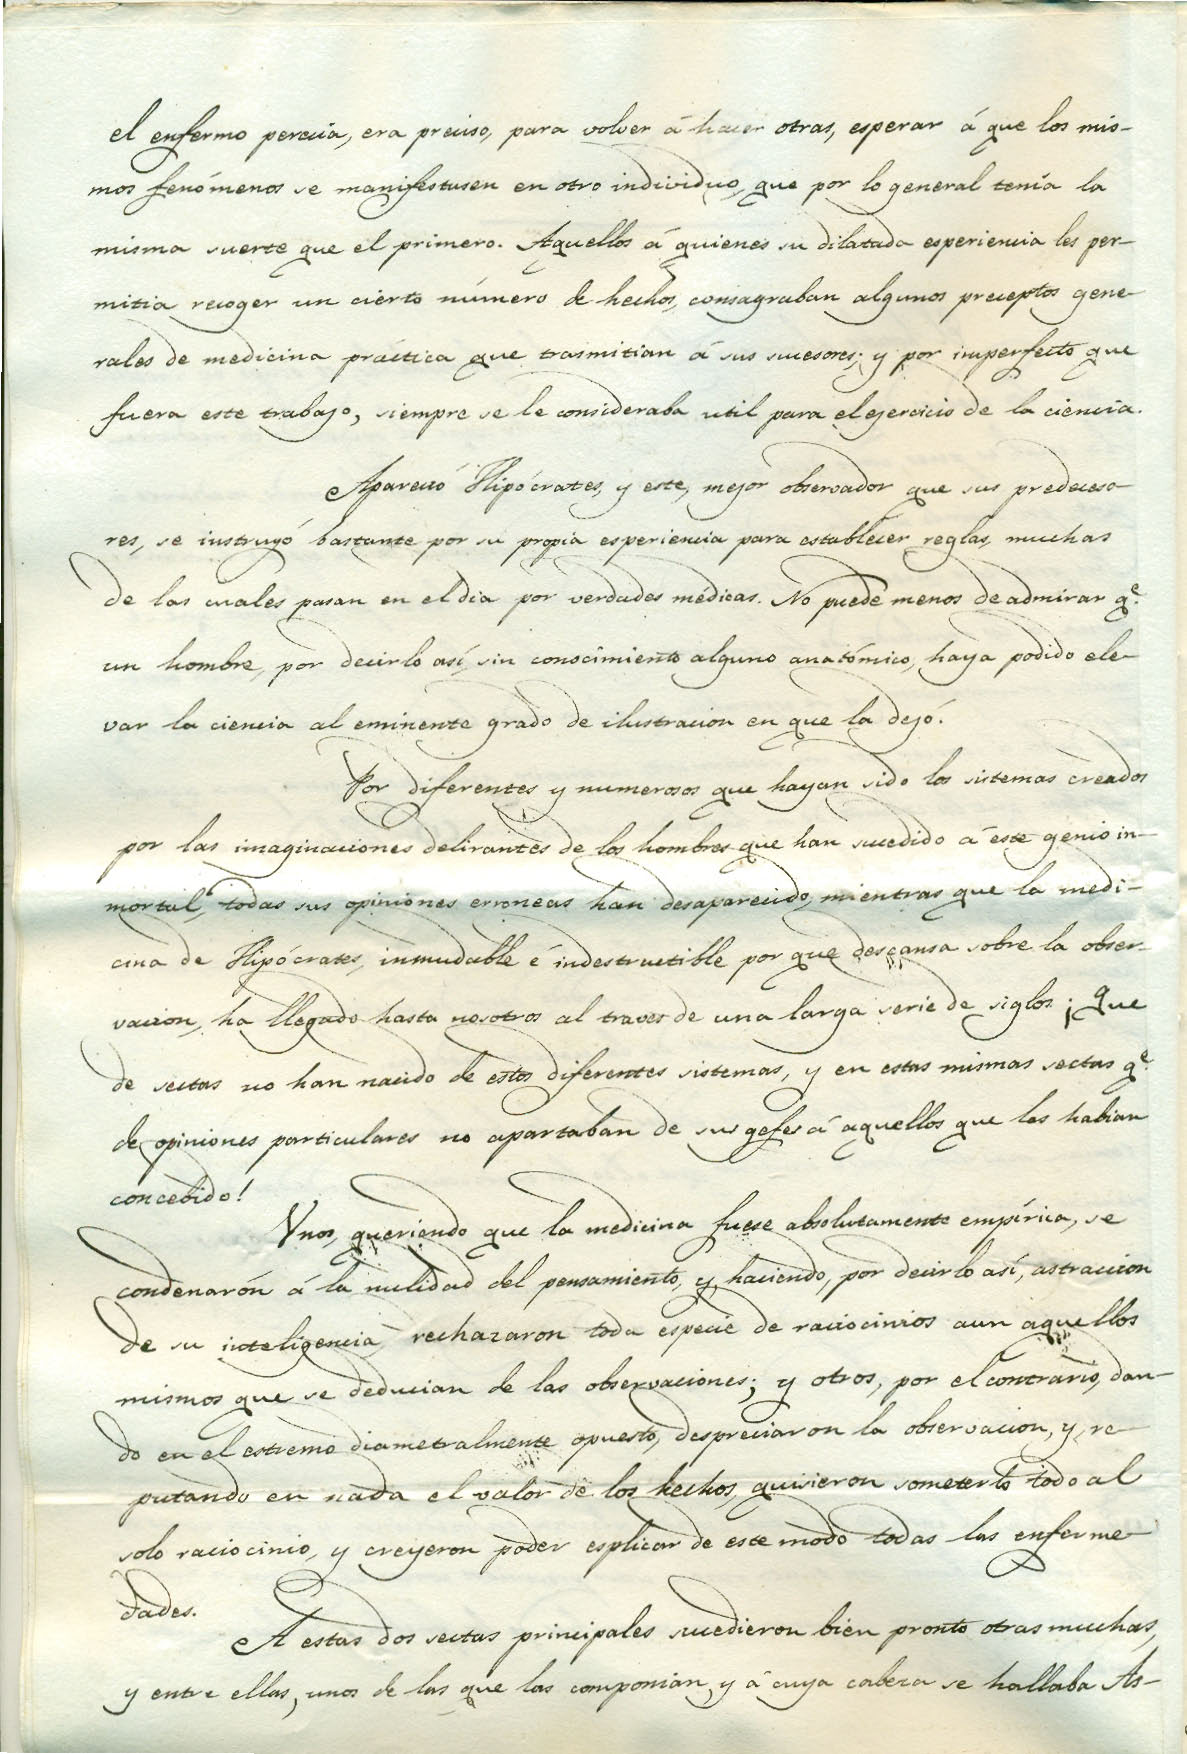 el enfermo perecia, era preciso, para volver á hacer otras, esperar á que los mis-
mos fenómenos se manifestasen en otro individuo, que por lo general tenia la
misma suerte que el primero. Aquellos á quienes su dilatada esperiencia les per-
mitia recoger un cierto número de hechos, consagraban algunos preceptos gene-
rales de medicina práctica que trasmitian á sus sucesores; y por imperfecto que
fuera este trabajo, siempre se le consideraba util para el ejercicio de la ciencia.
Apareció Hipócrates, y este, mejor observador que sus predeceso-
res, se instruyó bastante por su propia esperiencia para establecer reglas, muchas
de las cuales pasan en el dia por verdades médicas. No puede menos de admirar qe.
un hombre, por decirlo así, sin conocimiento alguno anatómico, haya podido ele-
var la ciencia al eminente grado de ilustracion en que la dejó.
Por diferentes y numerosos que hayan sido los sistemas creados
por las imaginaciones delirantes de los hombres que han sucedido á este genio in-
mortal, todas sus opiniones erroneas han desaparecido, mientras que la medi-
cina de Hipócrates, inmudable é indestructible por que descansa sobre la obser-
vacion, ha llegado hasta nosotros al traves de una larga serie de siglos ¡Que
de sectas no han nacido de estos diferentes sistemas, y en estas mismas sectas qe.
de opiniones particulares no apartaban de sus gefes á aquellos que las habian
concebido!
Unos, queriendo que la medicina fuese absolutamente empírica, se
condenarón á la nulidad del pensamiento, y, haciendo, por decirlo así, astraccion
de su inteligencia, rechazaron toda especie de raciocinios aun aquellos
mismos que se deducian de las observaciones; y otros, por el contrario, dan-
do en el estremo diametralmente opuesto, despreciaron la observacion, y, re-
putando en nada el valor de los hechos, quisieron someterlo todo al
solo raciocinio, y creyeron poder esplicar de este modo todas las enferme-
dades.
A estas dos sectas principales sucedieron bien pronto otras muchas,
y entre ellas, unos de las que las componian, y á cuya cabeza se hallaba As-